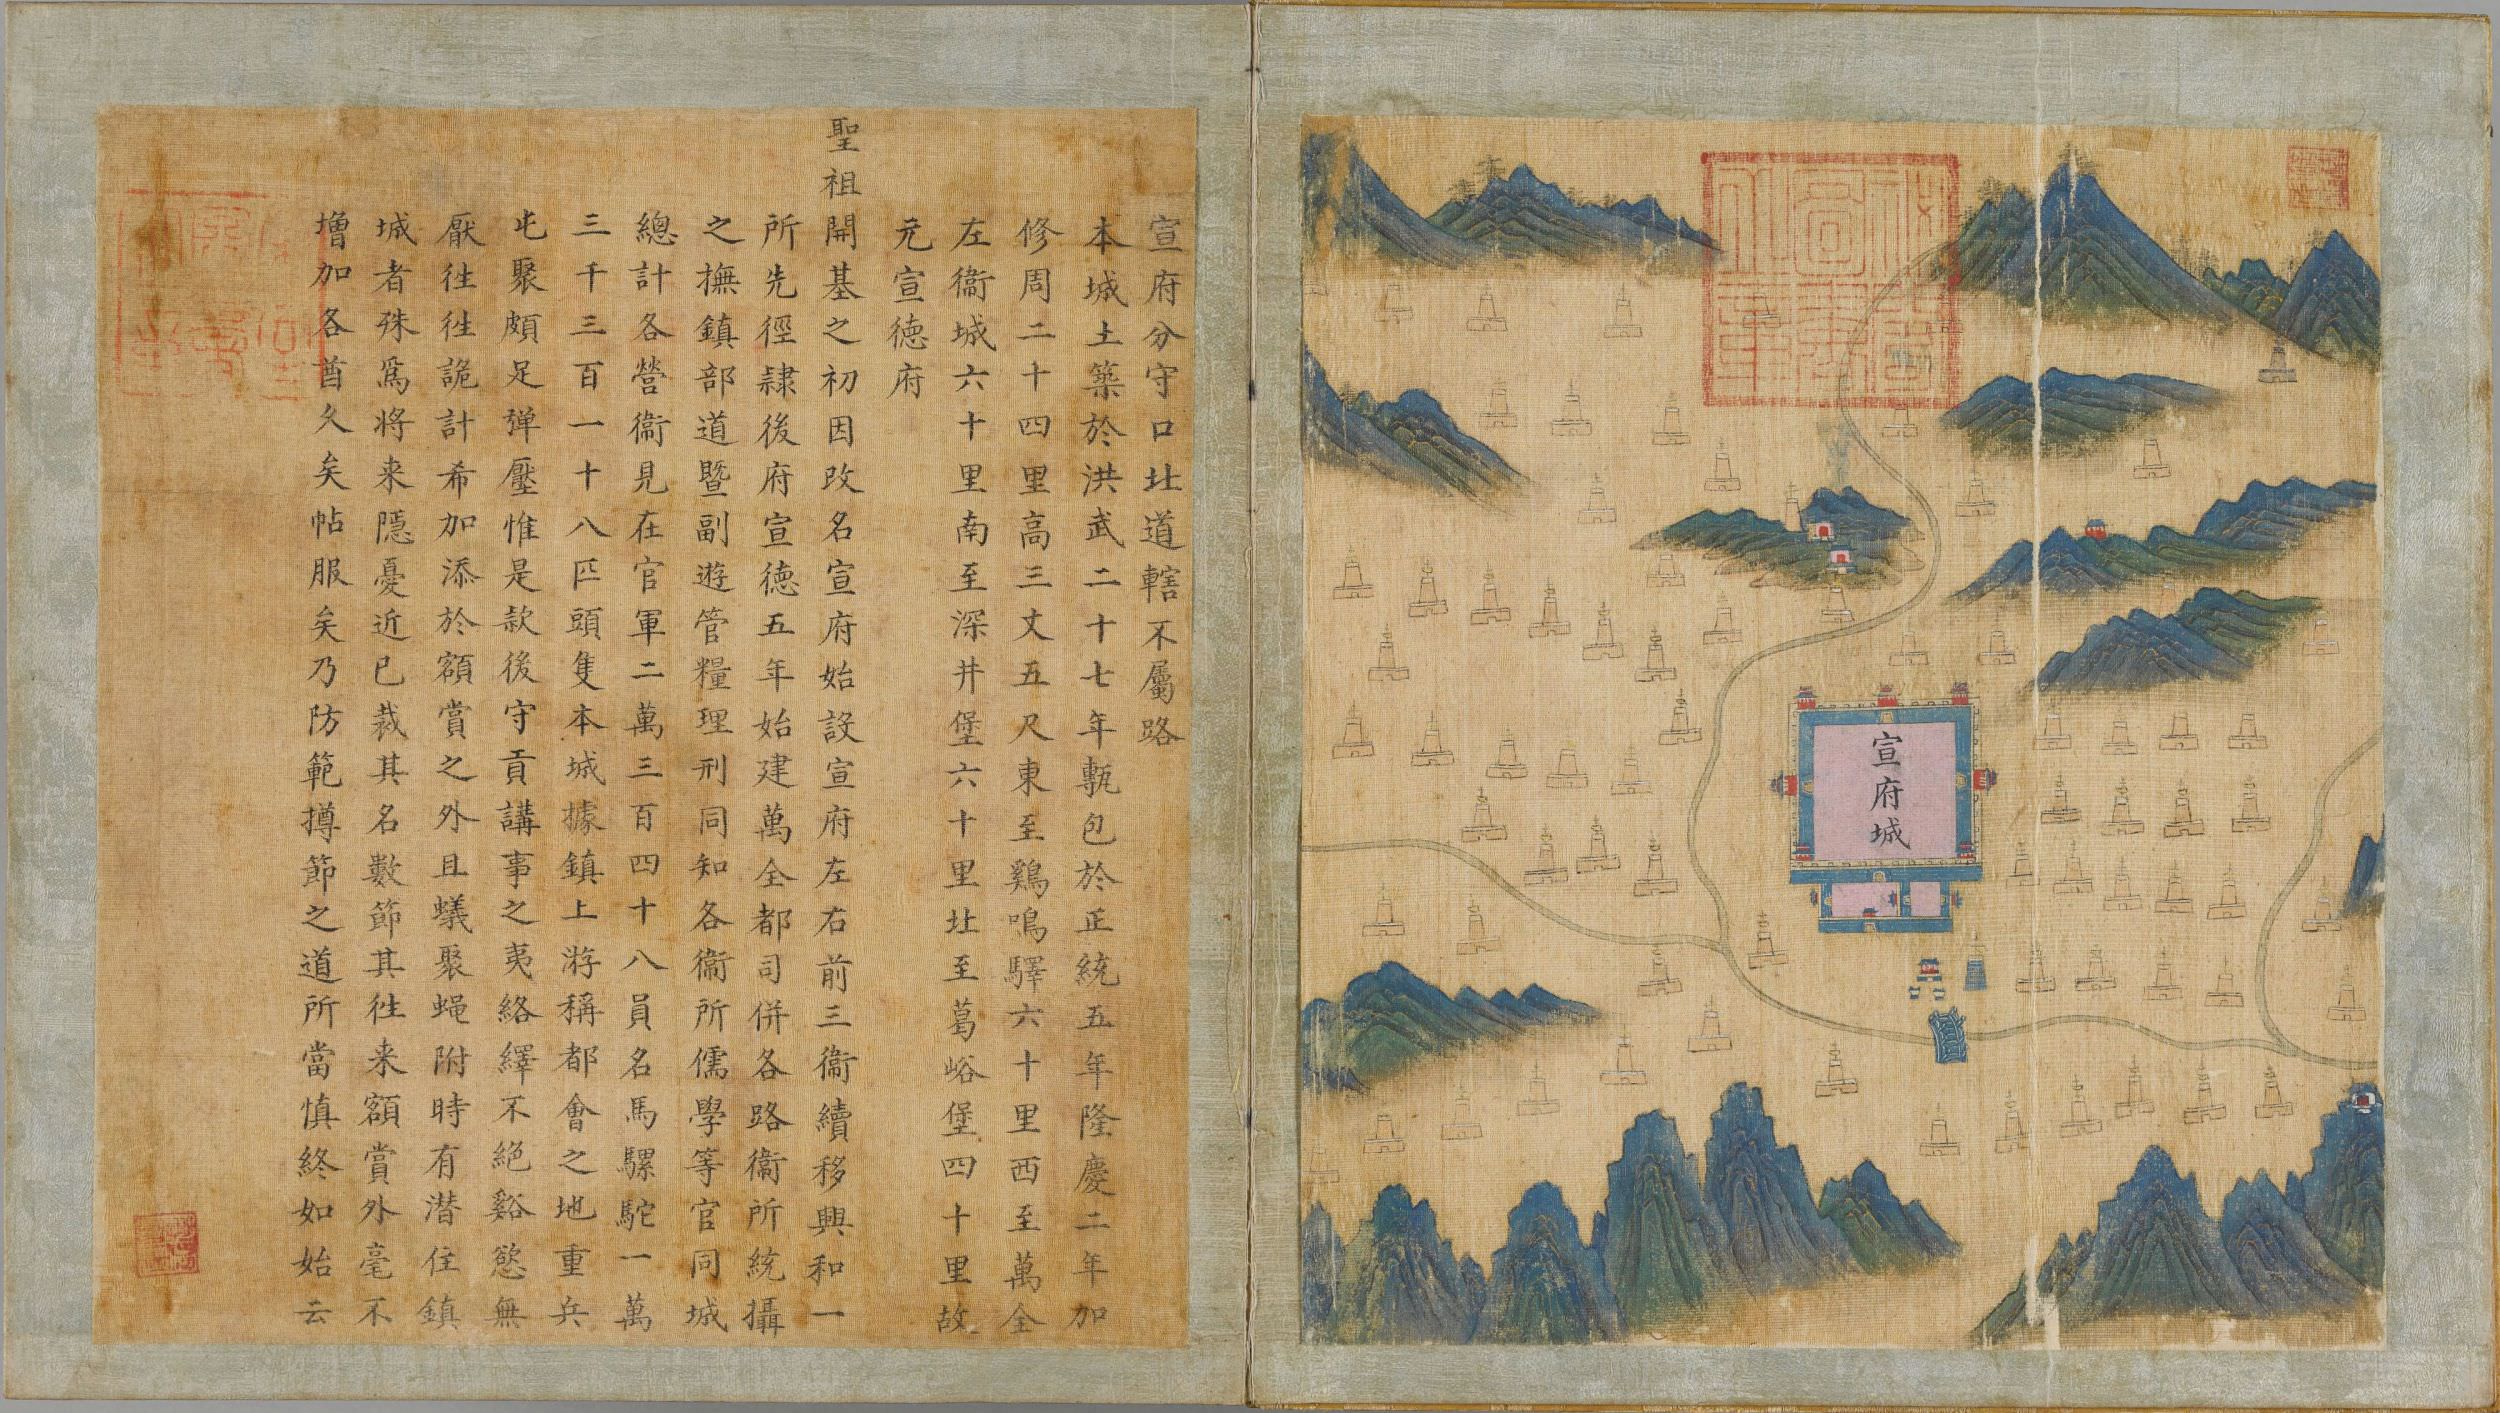 宣府城
宣府分守口北道轄不屬路
本城土築於洪武二十七年甎包於正統五年隆慶二年加
修周二十四里高三丈五尺東至鷄鳴驛六十里西至萬全
左衞城六十里南至深井堡六十里北至葛峪堡四十里故
元宣德府
聖祖開基之初因改名宣府始設宣府左右前三衞續移興和一
所先徑隷後府宣徳五年始建萬全都司併各路衞所統攝
之撫鎮部道暨副遊管糧理刑同知各衞所儒學等官同城
總計各營衞見在官軍二萬三百四十八員名馬騾駝一萬
三千三百一十八匹頭隻本城據鎮上游稱都會之地重兵
屯聚頗足弹壓惟是款後守貢講事之夷絡繹不絕谿慾無
厭徃徃詭計希加添於額賞之外且蟻聚蝇附時有潜住鎮
城者殊爲將来隱憂近已裁其名數節其徃来額賞外毫不
增加各酋久矣帖服矣乃防範撙節之道所當慎終如始云